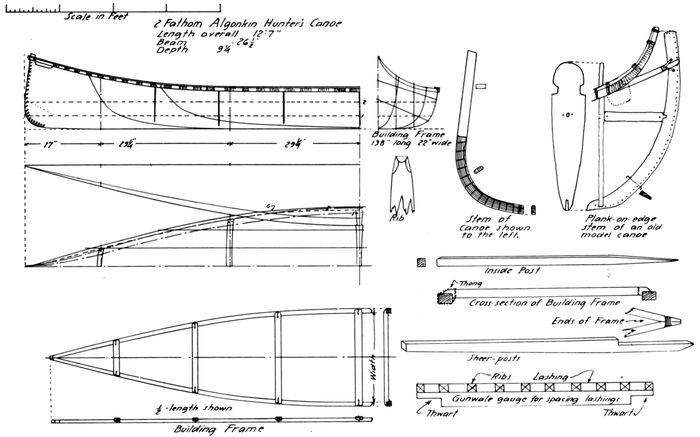 Scale in Feet
2 Fathom Algonkin Hunter's Canoe
Length overall 12'7"
Beam 26½"
Depth 9¼"
17"
29¼"
29¼"
Building Frame
138" long 22" wide
Rib
Stem of
Canoe shown
to the left.
Plank-on-edge
stem of an old
model canoe
Inside Post
Thong
Cross-section of Building Frame
Ends of Frame
Sheer-posts
Width
½-length shown
Building Frame
Ribs
Lashing
Gunwale gauge for spacing lashings
Thwart
Thwart